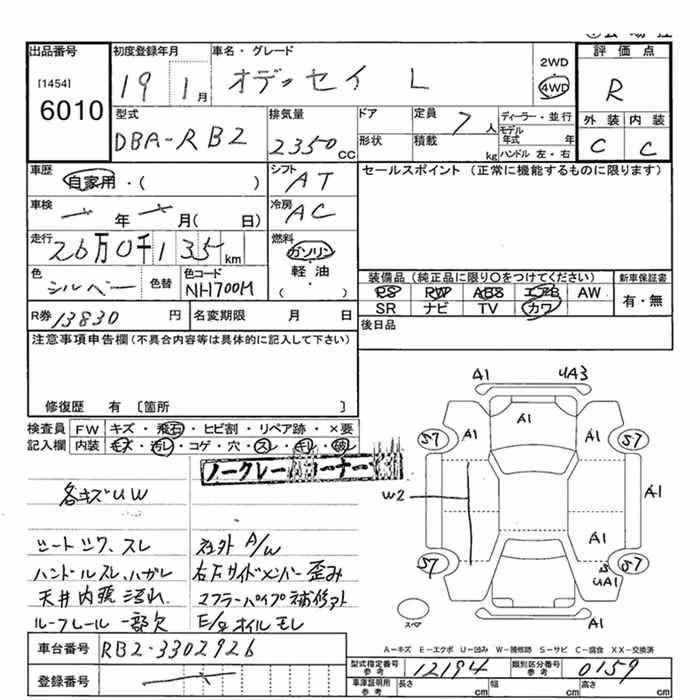 出品番号
[1454]
6010
初度登録年月
19 1月
車名・グレード
オデッセイ L
2WD
4WD
評価点
R
型式
DBA-RB2
排気量
2350 CC
ドア
形状
定員 7人
積載 kg
ディーラー・並行
モデル年式 年
ハンドル 左・右
外装 内装
C C
車歴
自家用・( )
シフト
AT
セールスポイント (正常に機能するものに限ります)
車検
年 月( 日)
冷房
AC
走行
26万0千135km
燃料
ガソリン
軽・油
( )
色
シルバー
色替
色コード
NH700M
装備品(純正品に限り○をつけてください)
新車保証書
PS PW ABS エアB AW
SR ナビ TV カワ
有・無
R券 13830 円
名変期限 月 日
後日品
注意事項申告欄(不具合内容等は具体的に記入して下さい)
修復歴 有 [箇所 ]
検査員記入欄
FW キズ・飛石・ヒビ割・リペア跡・×要
内装 キズ・汚レ・コゲ・穴・スレ・キレ・破レ
ノークレームコーナー
各キズUW
シートシワ、スレ
社外 A/W
ハンドルスレ、ハガレ
右Fサイドメンバー歪み
天井内張汚れ
マフラーパイプ補修アト
ルーフレール一部欠
E/gオイルモレ
A1 UA3
A1
S7 A1 A1 S7
W2 A1
A1
S7 S UA1 S7
スペア
A1
A-キズ E-エクボ U-凹み W-補修跡 S-サビ C-腐食 XX-交換済
車台番号
RB2-3302926
登録番号
型式指定番号 参考 12194
類別区分番号 参考 0159
車庫証明用 参考
長さ cm
幅 cm
高さ cm